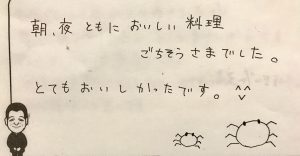 朝、夜 ともに おいしい 料理
ごちそうさまでした。
とても おいしかったです。^^